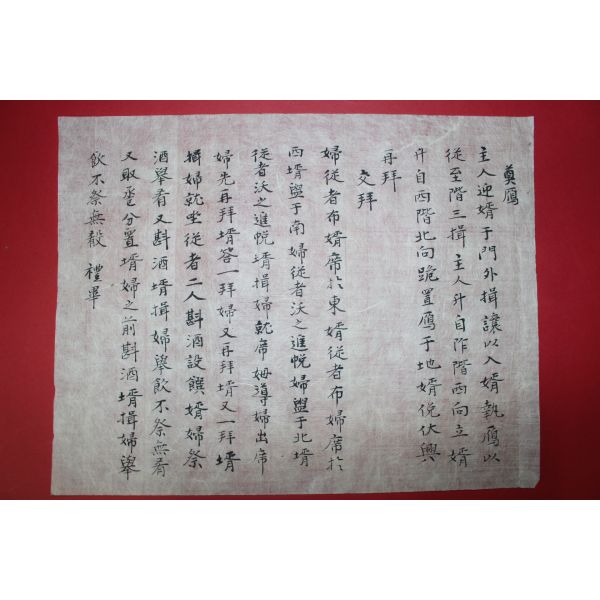 奠鴈
主人迎婿于門外揖讓以入婿執鴈以
從至階三揖主人升自阼階西向立婿
升自西階北向跪置鴈于地婿俛伏興
再拜
交拜
婦從者布婿席於東婿從者布婦席於
西婿盥于南婦從者沃之進帨婦盥于北婿
從者沃之進帨婿揖婦就席姆導婦出席
婦先再拜婿答一拜婦又再拜婿又一拜婿
揖婦就坐從者二人斟酒設饌婿婦祭
酒舉肴又斟酒婿揖婦舉飲不祭無肴
又取巹分置婿婦之前斟酒婿揖婦舉
飲不祭無殽 禮畢